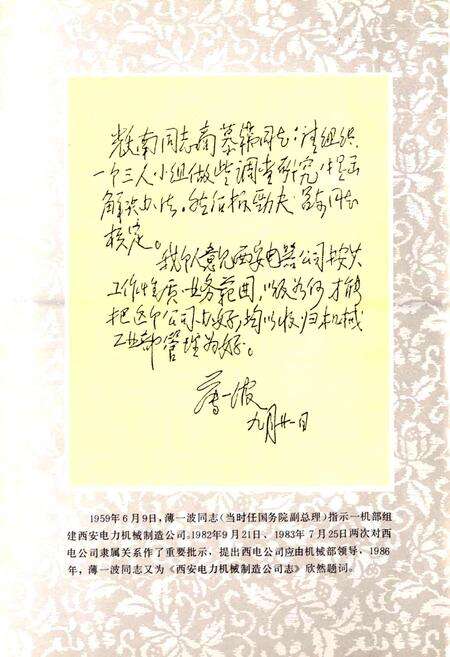 光南同志商慕韩同志：请组织
一个三人小组做些调查研究，提出
解决办法。然后报劲夫、同志
核定。
我个人意见西安电器公司按其
工作性质、业务范围，以及为何才能
把这个公司办好，均以收归机械
工业部管理为好。
薄一波
九月廿一日
1959年6月9日，薄一波同志（当时任国务院副总理）指示一机部组
建西安电力机械制造公司。1982年9月21日、1983年7月25日两次对西
电公司隶属关系作了重要批示，提出西电公司应由机械部领导，1986
年，薄一波同志又为《西安电力机械制造公司志》欣然题词。